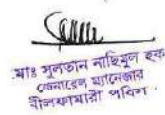 মোঃ সুলতান নাছিমুল হক
জেনারেল ম্যানেজার
নীলফামারী পবিস।